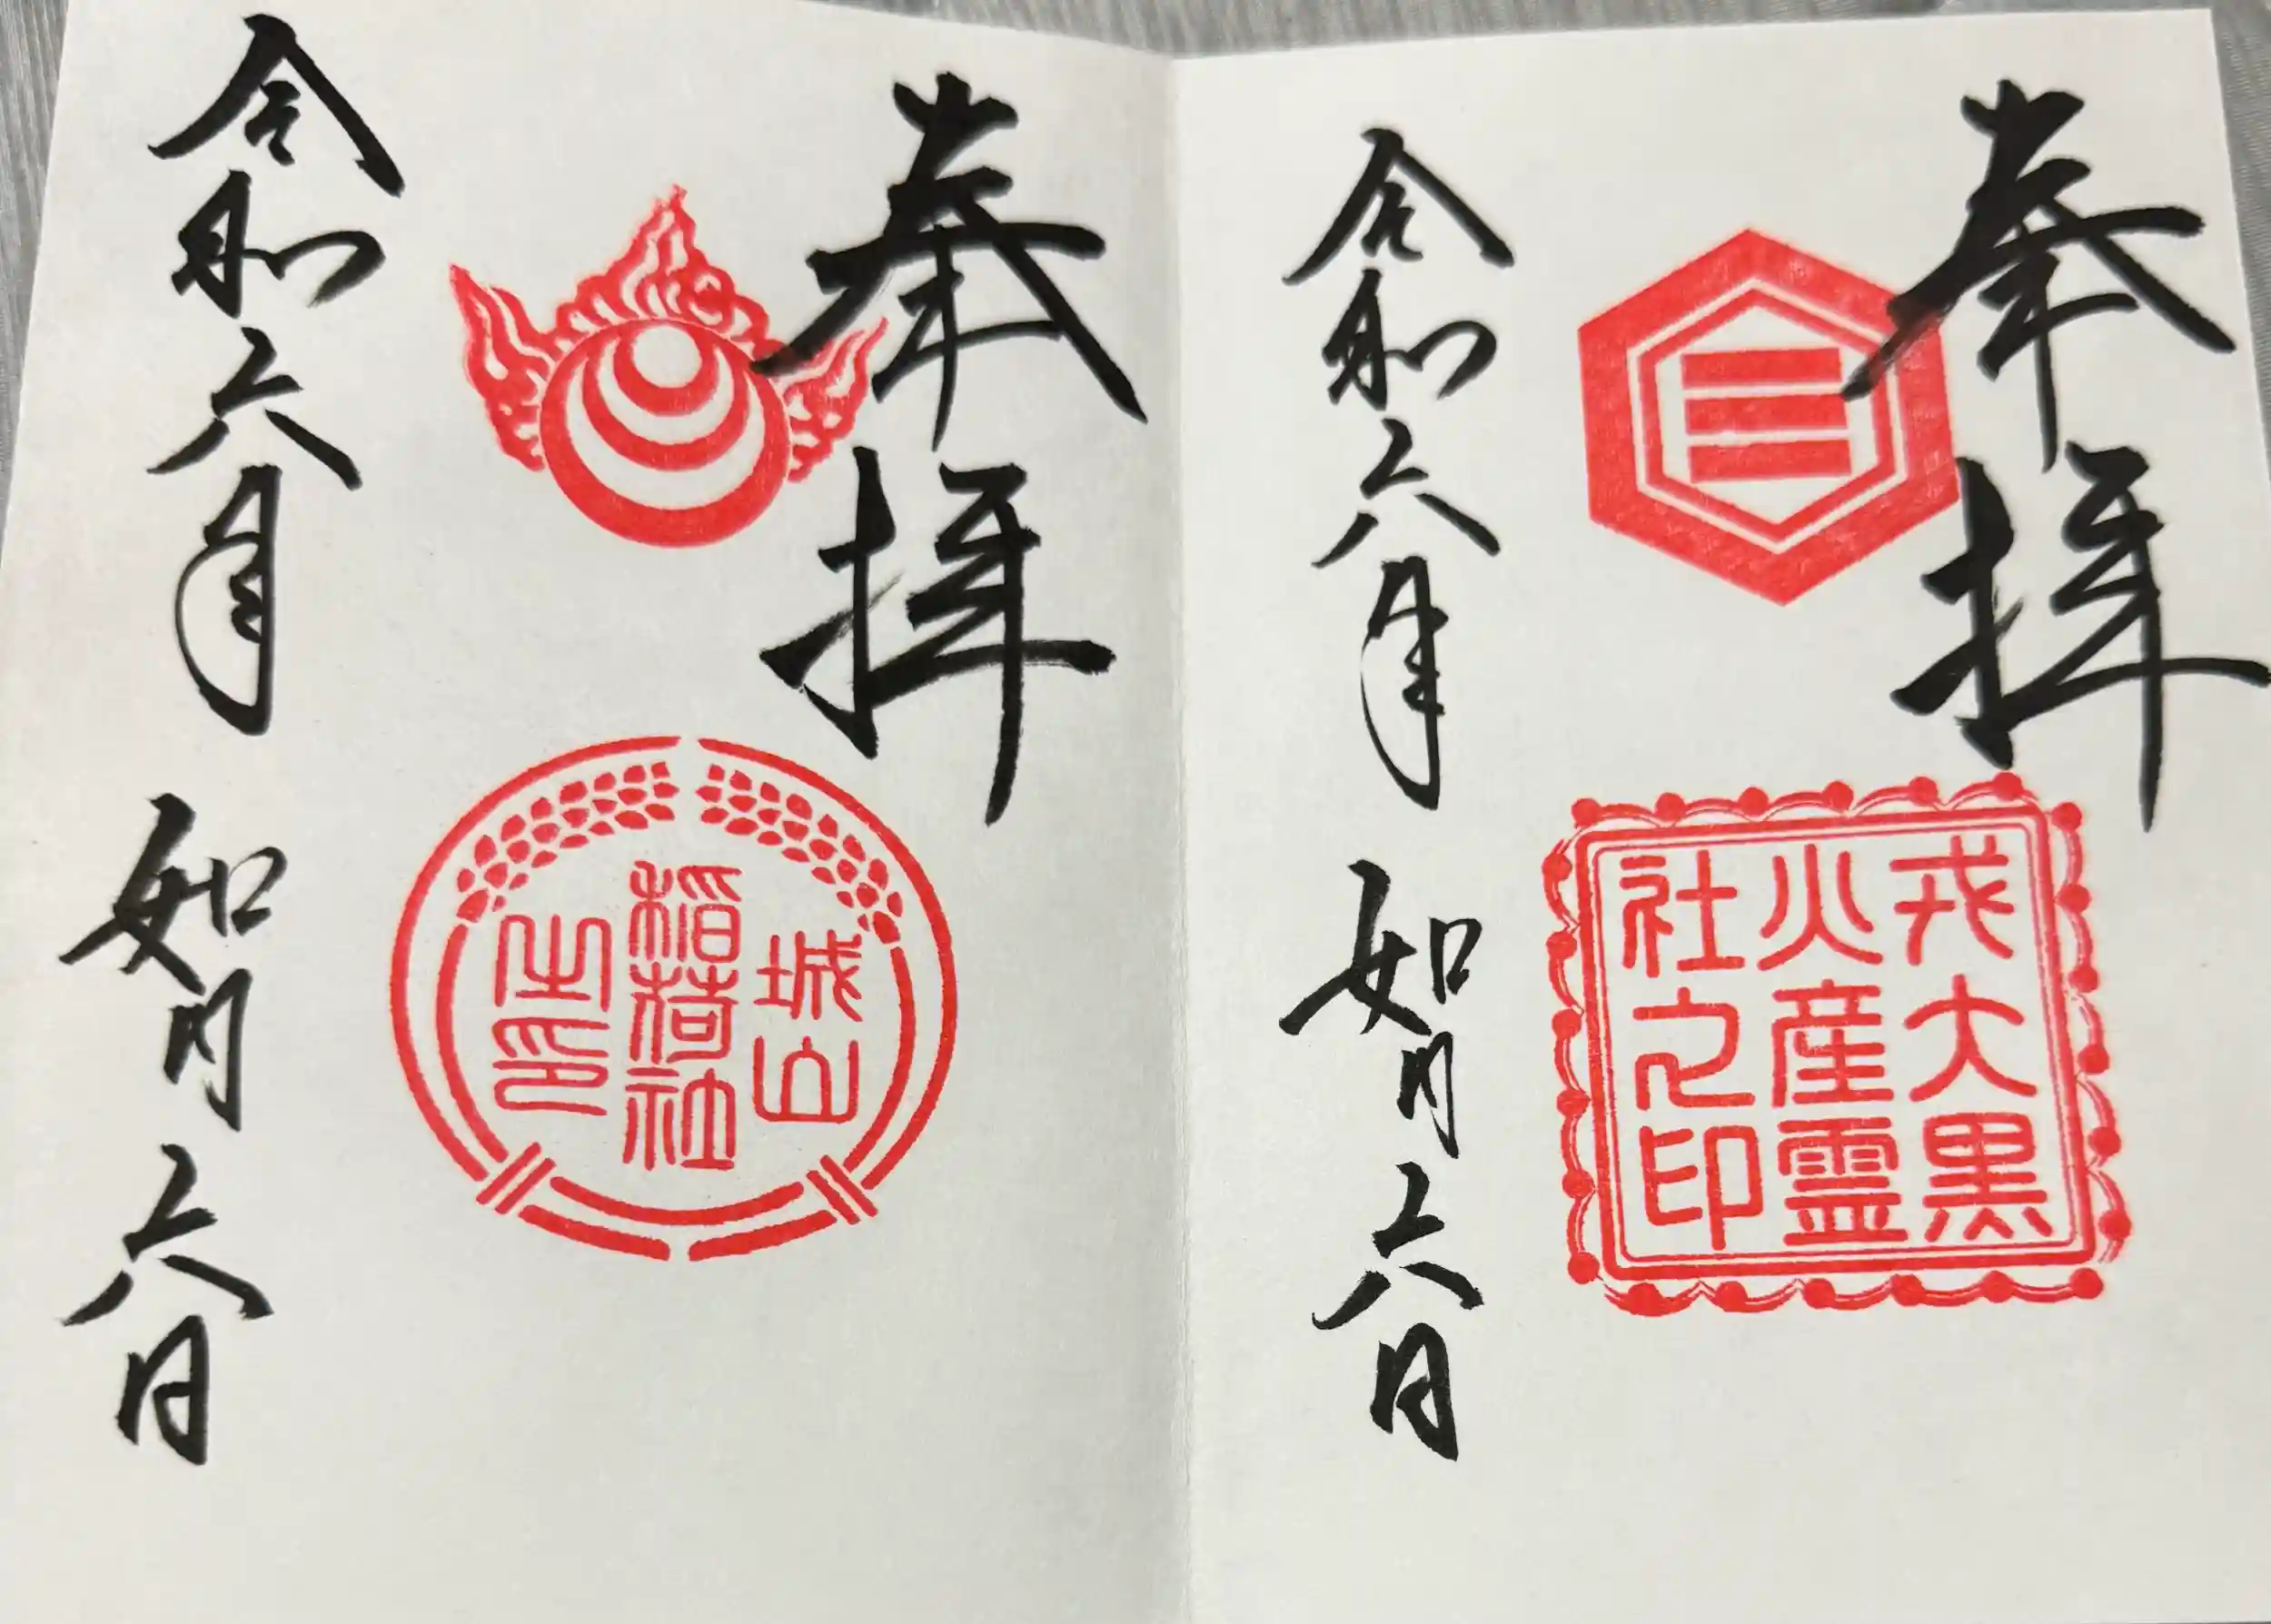 奉拝
戎大黒
火産霊
社之印
令和六年 如月 六日
奉拝
城山
稲荷社
之印
令和六年 如月 六日